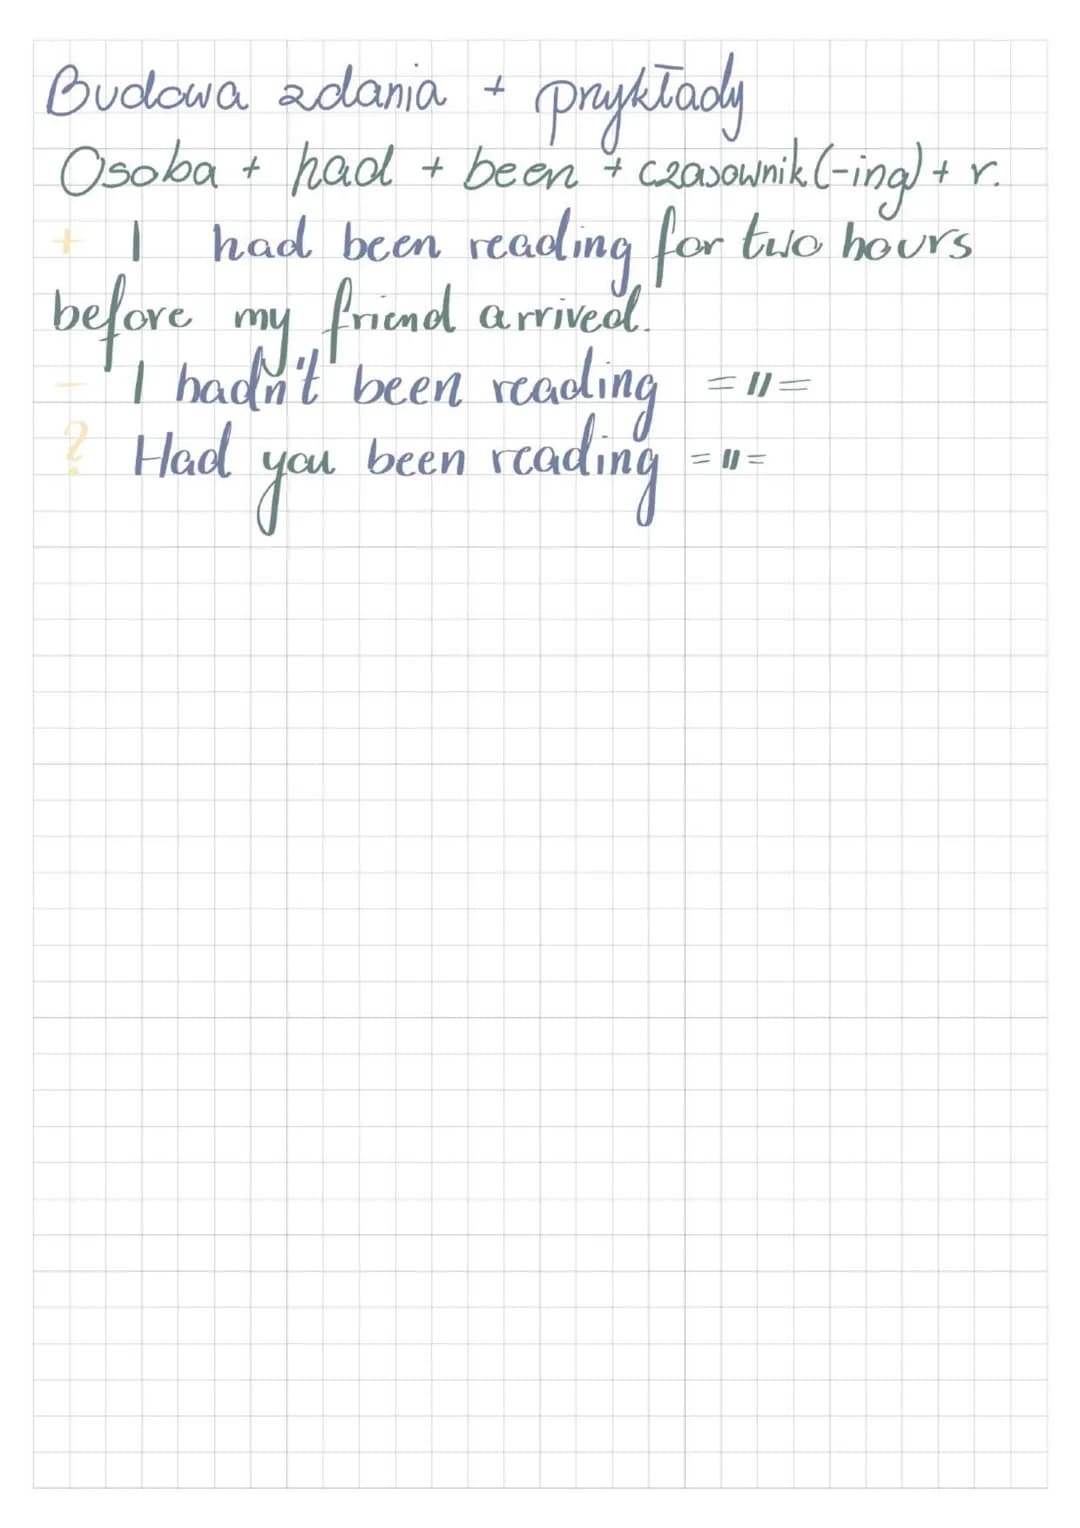 Budowa zdania + przykłady
Osoba + had + been + czasownik (-ing) + r.
+ I had been reading for two hours
before my friend arrived.
- I hadn't been reading =||=
? Had you been reading =||=